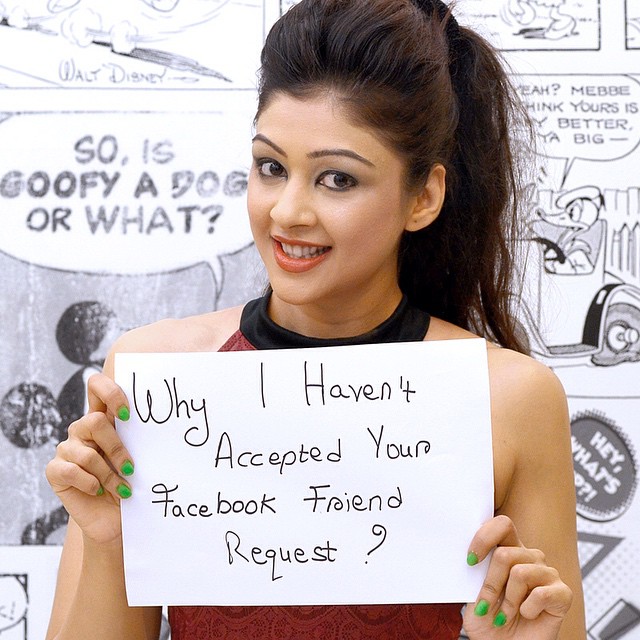 WALT DISNEY
SO, IS
GOOFY A DOG
OR WHAT?
YEAH? MEBBE
THINK YOURS IS
BETTER,
YA BIG —
Why I Haven't
Accepted Your
Facebook Friend
Request ?
HEY,
WHAT'S